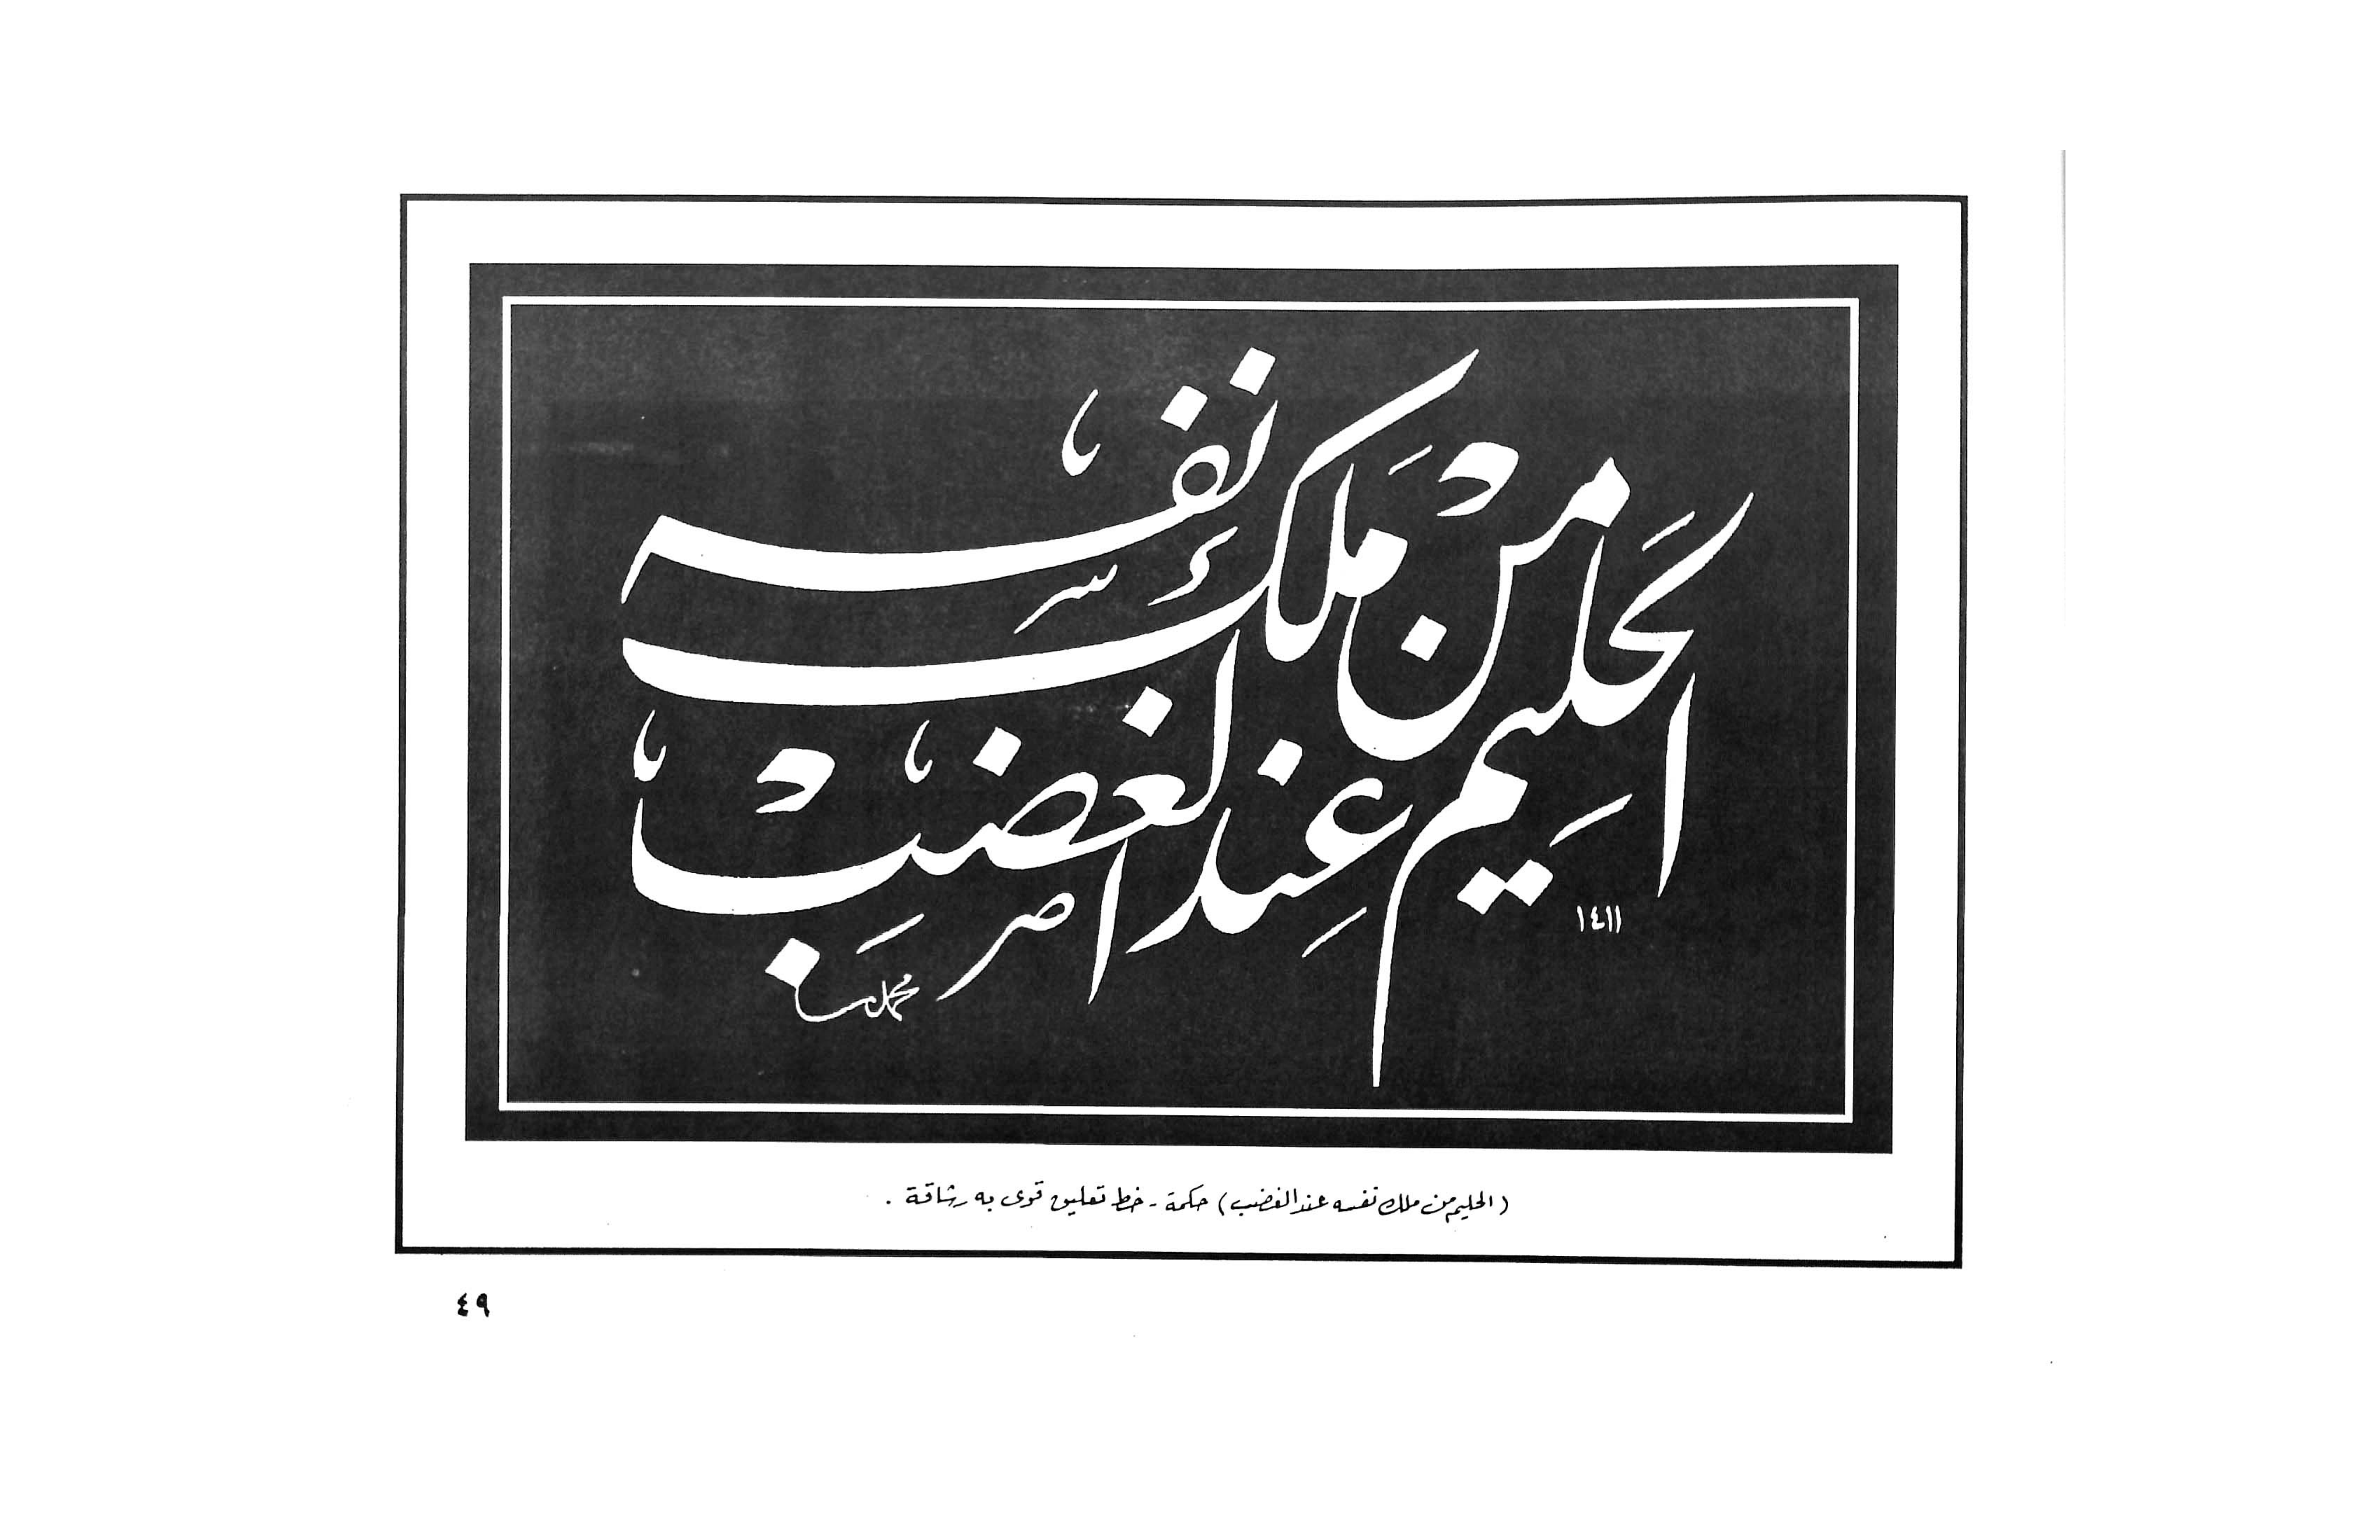 الحَلِيم مَنْ مَلَكَ نفسه
عِند الغضبْ
١٤١١
(الحليم من ملك نفسه عند الغضب) حكمة - خط تعليق قوى به رشاقة .
٤٩